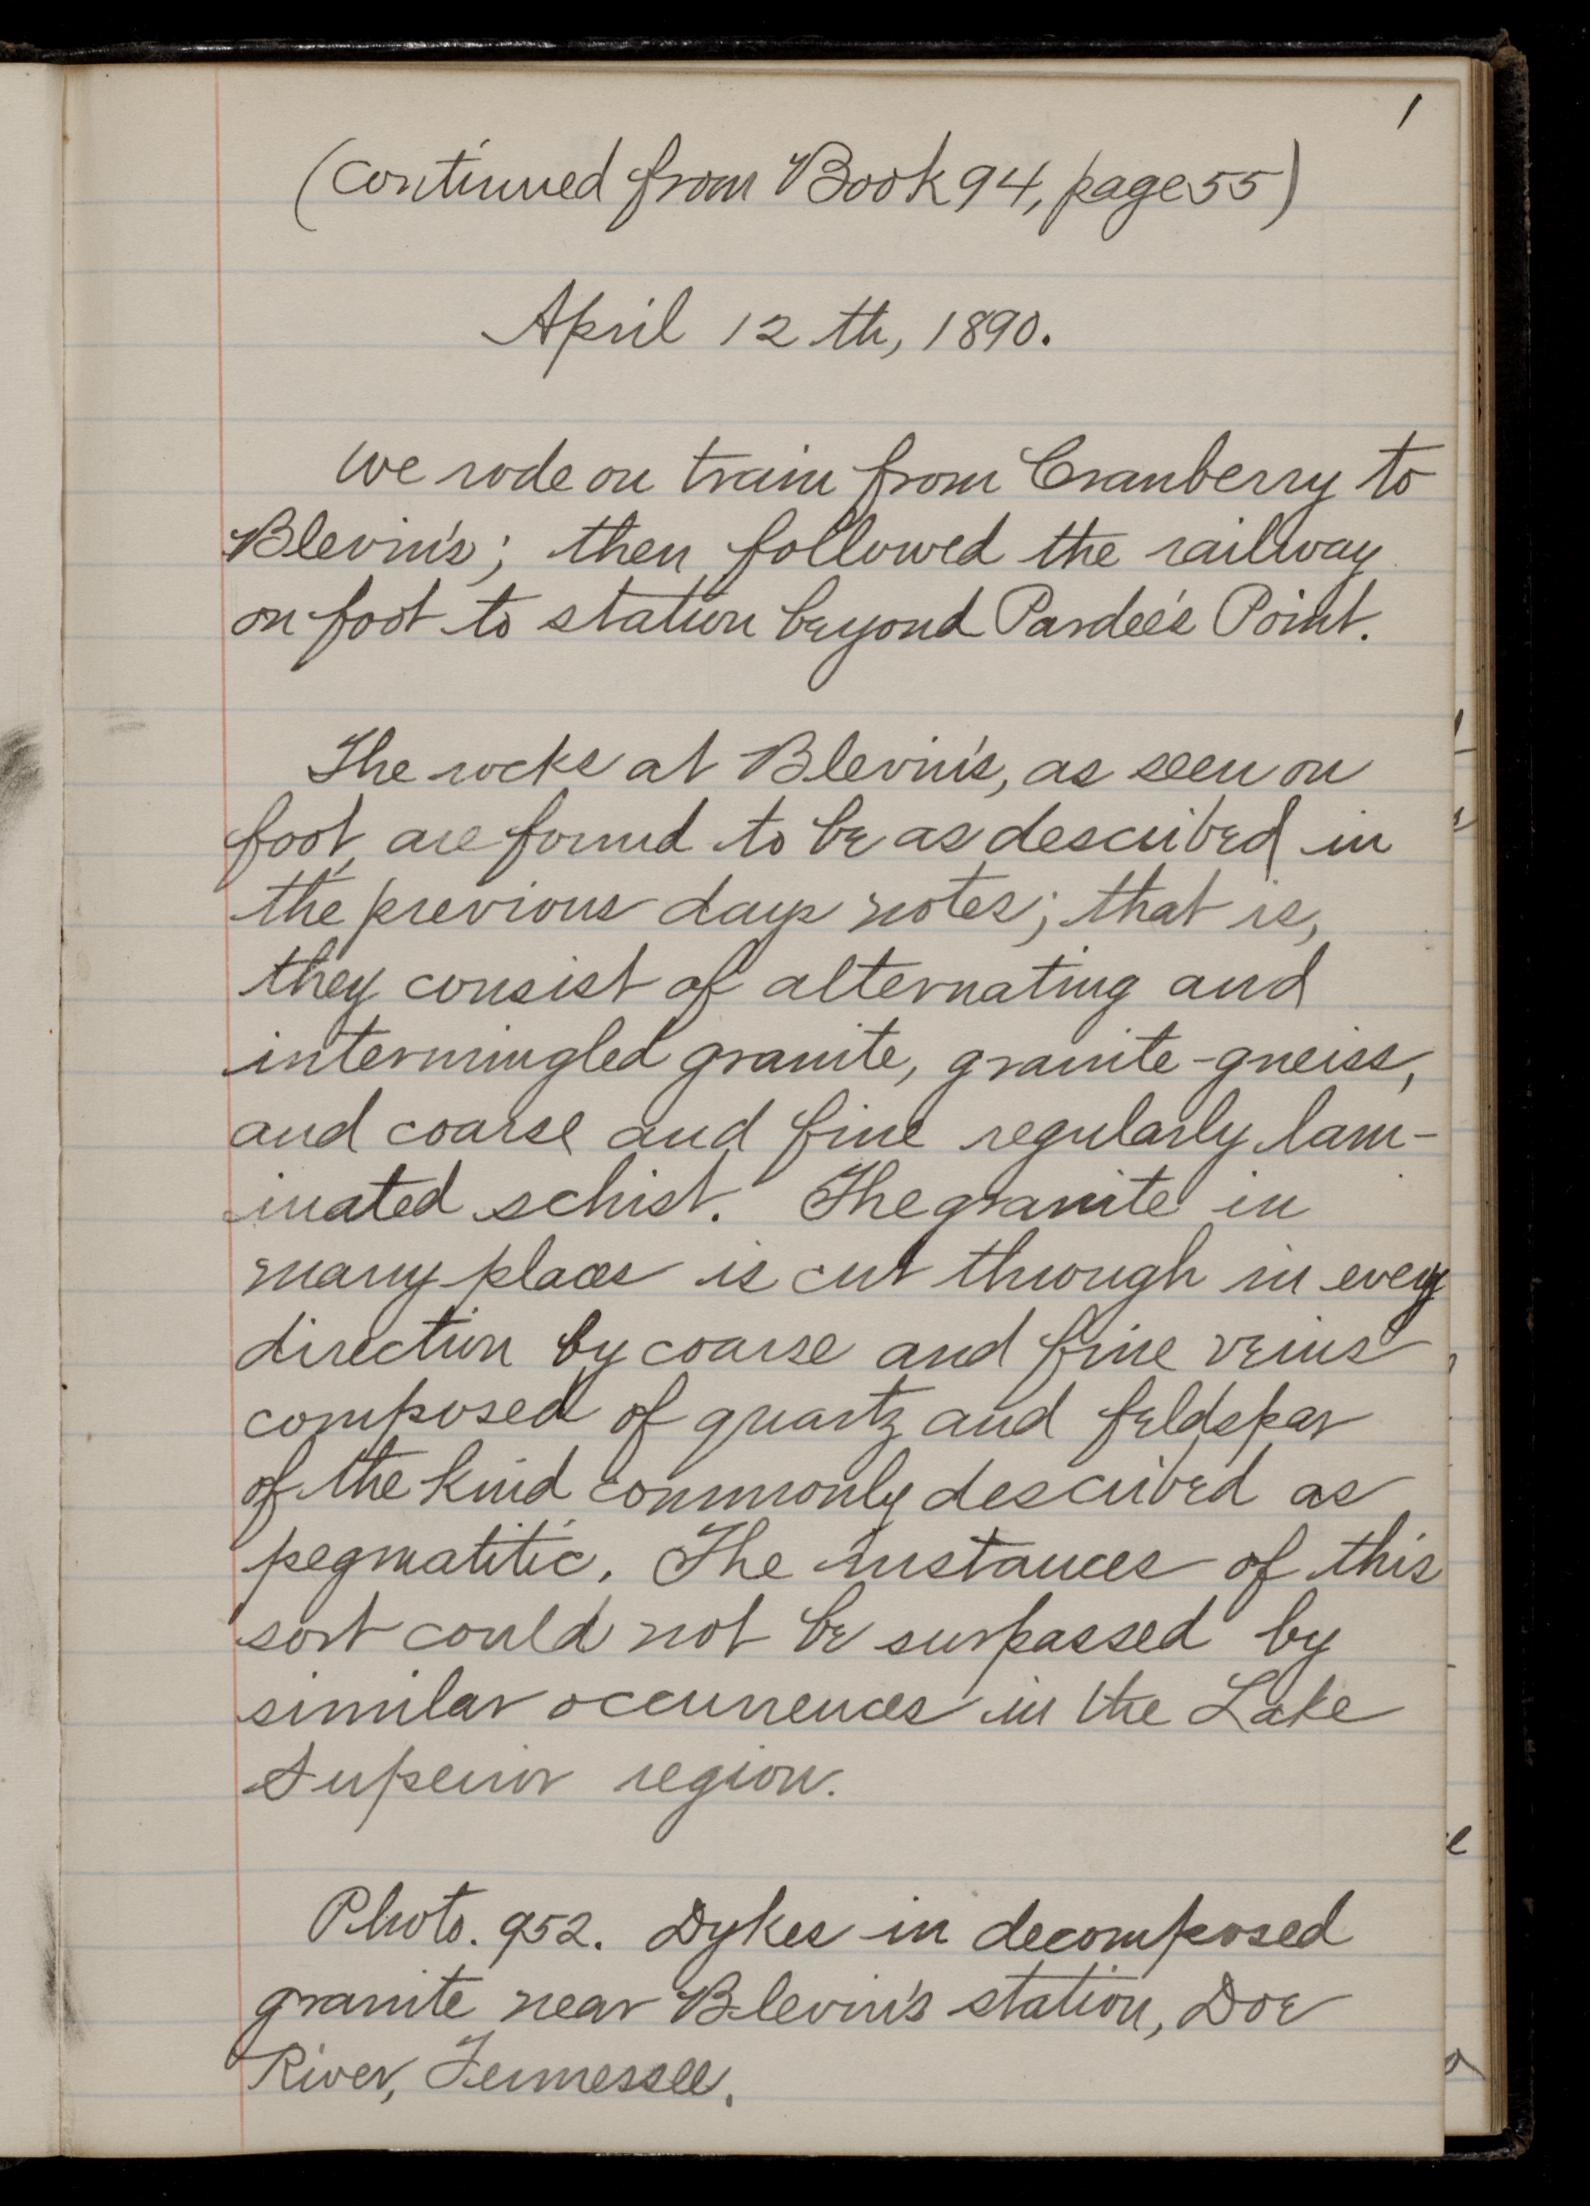 1
(Continued from Book 94, page 55)
April 12th, 1890.
We rode on train from Cranberry to
Blevin's; then followed the railway
on foot to station beyond Pardee's Point.
The rocks at Blevin's, as seen on
foot, are found to be as described in
the previous days notes; that is,
they consist of alternating and
intermingled granite, granite-gneiss,
and coarse and fine regularly lam-
inated schist. The granite in
many places is cut through in every
direction by coarse and fine veins
composed of quartz and feldspar
of the kind commonly described as
pegmatitic. The instances of this
sort could not be surpassed by
similar occurrences in the Lake
Superior region.
Photo. 952. Dykes in decomposed
granite near Blevin's station, Doe
River, Tennessee.